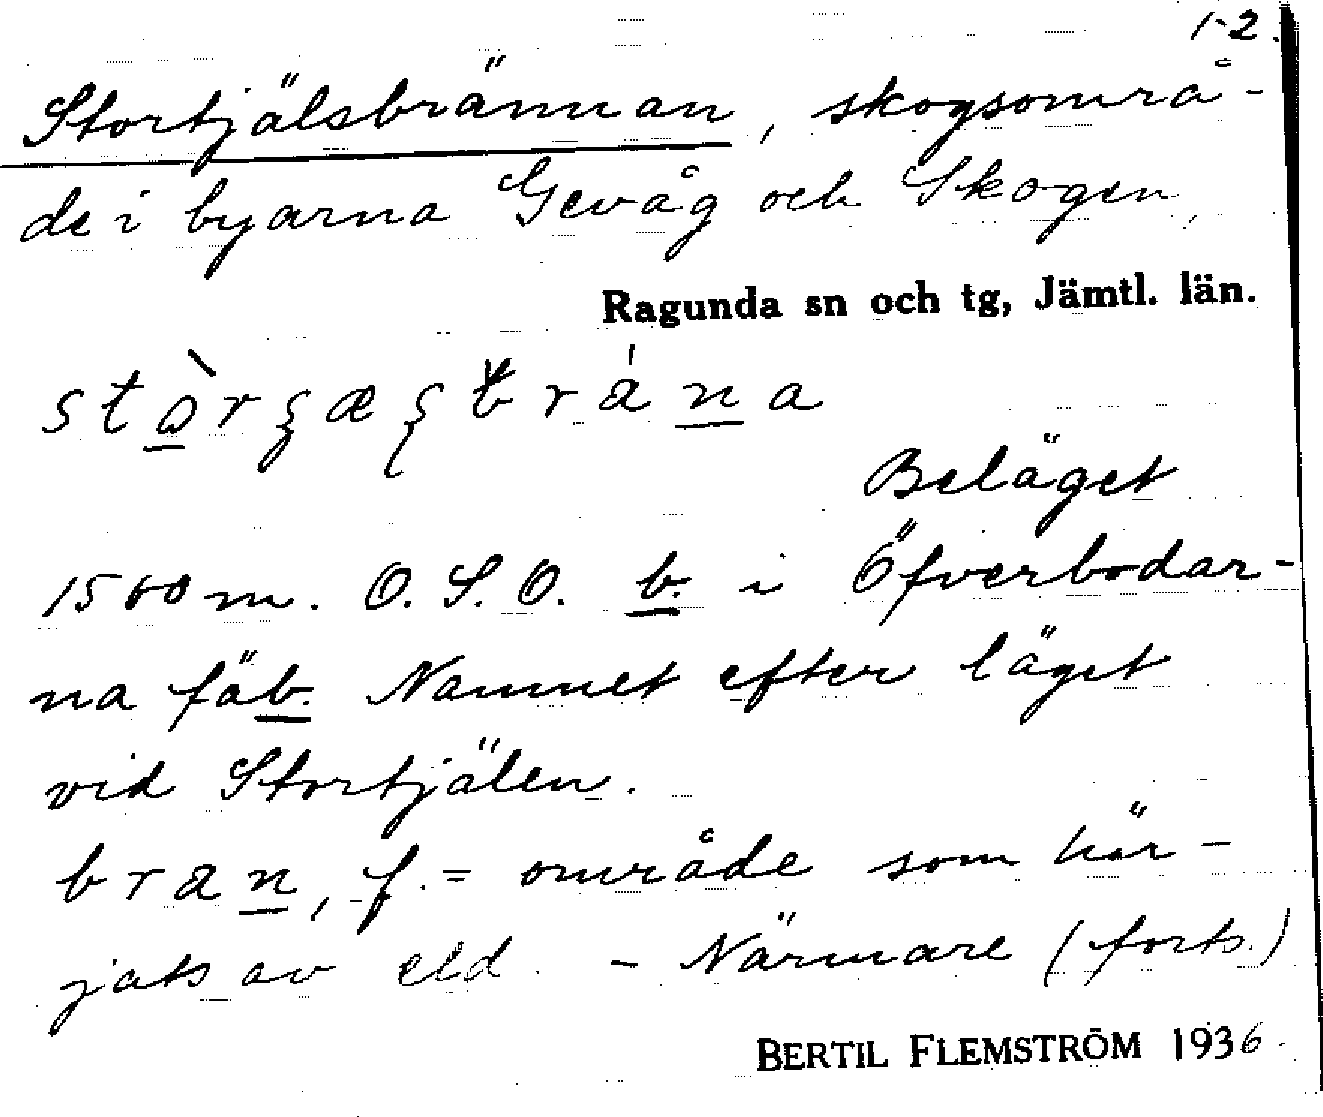 1-2.
Stortjälsbrännan, skogsområ-
de i byarna Gevåg och Skogen,
Ragunda sn och tg, Jämtl. län.
Beläget
1560 m. O.S.O. b. i Öfverbodar-
na fäb. Namnet efter läget
vid Stortjälen.
bran, f. = område som här-
jats av eld. - Närmare (forts.)
BERTIL FLEMSTRÖM 1936.